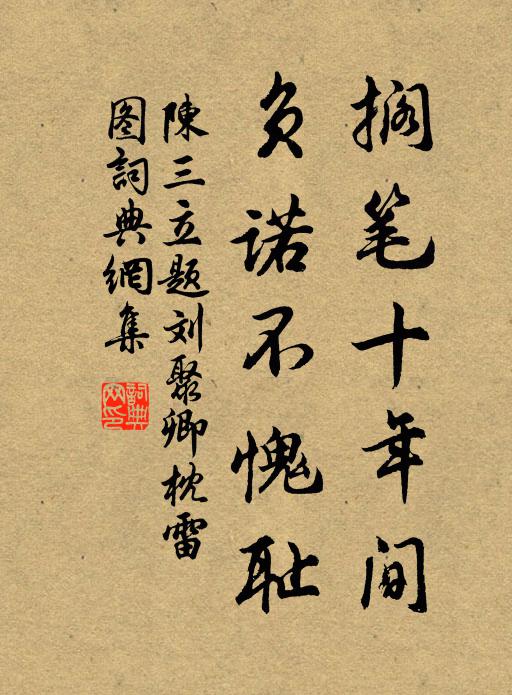 搁笔十年间
负诺不愧耻
陳三立题刘聚卿枕雷
图詞典網集
詞典网印